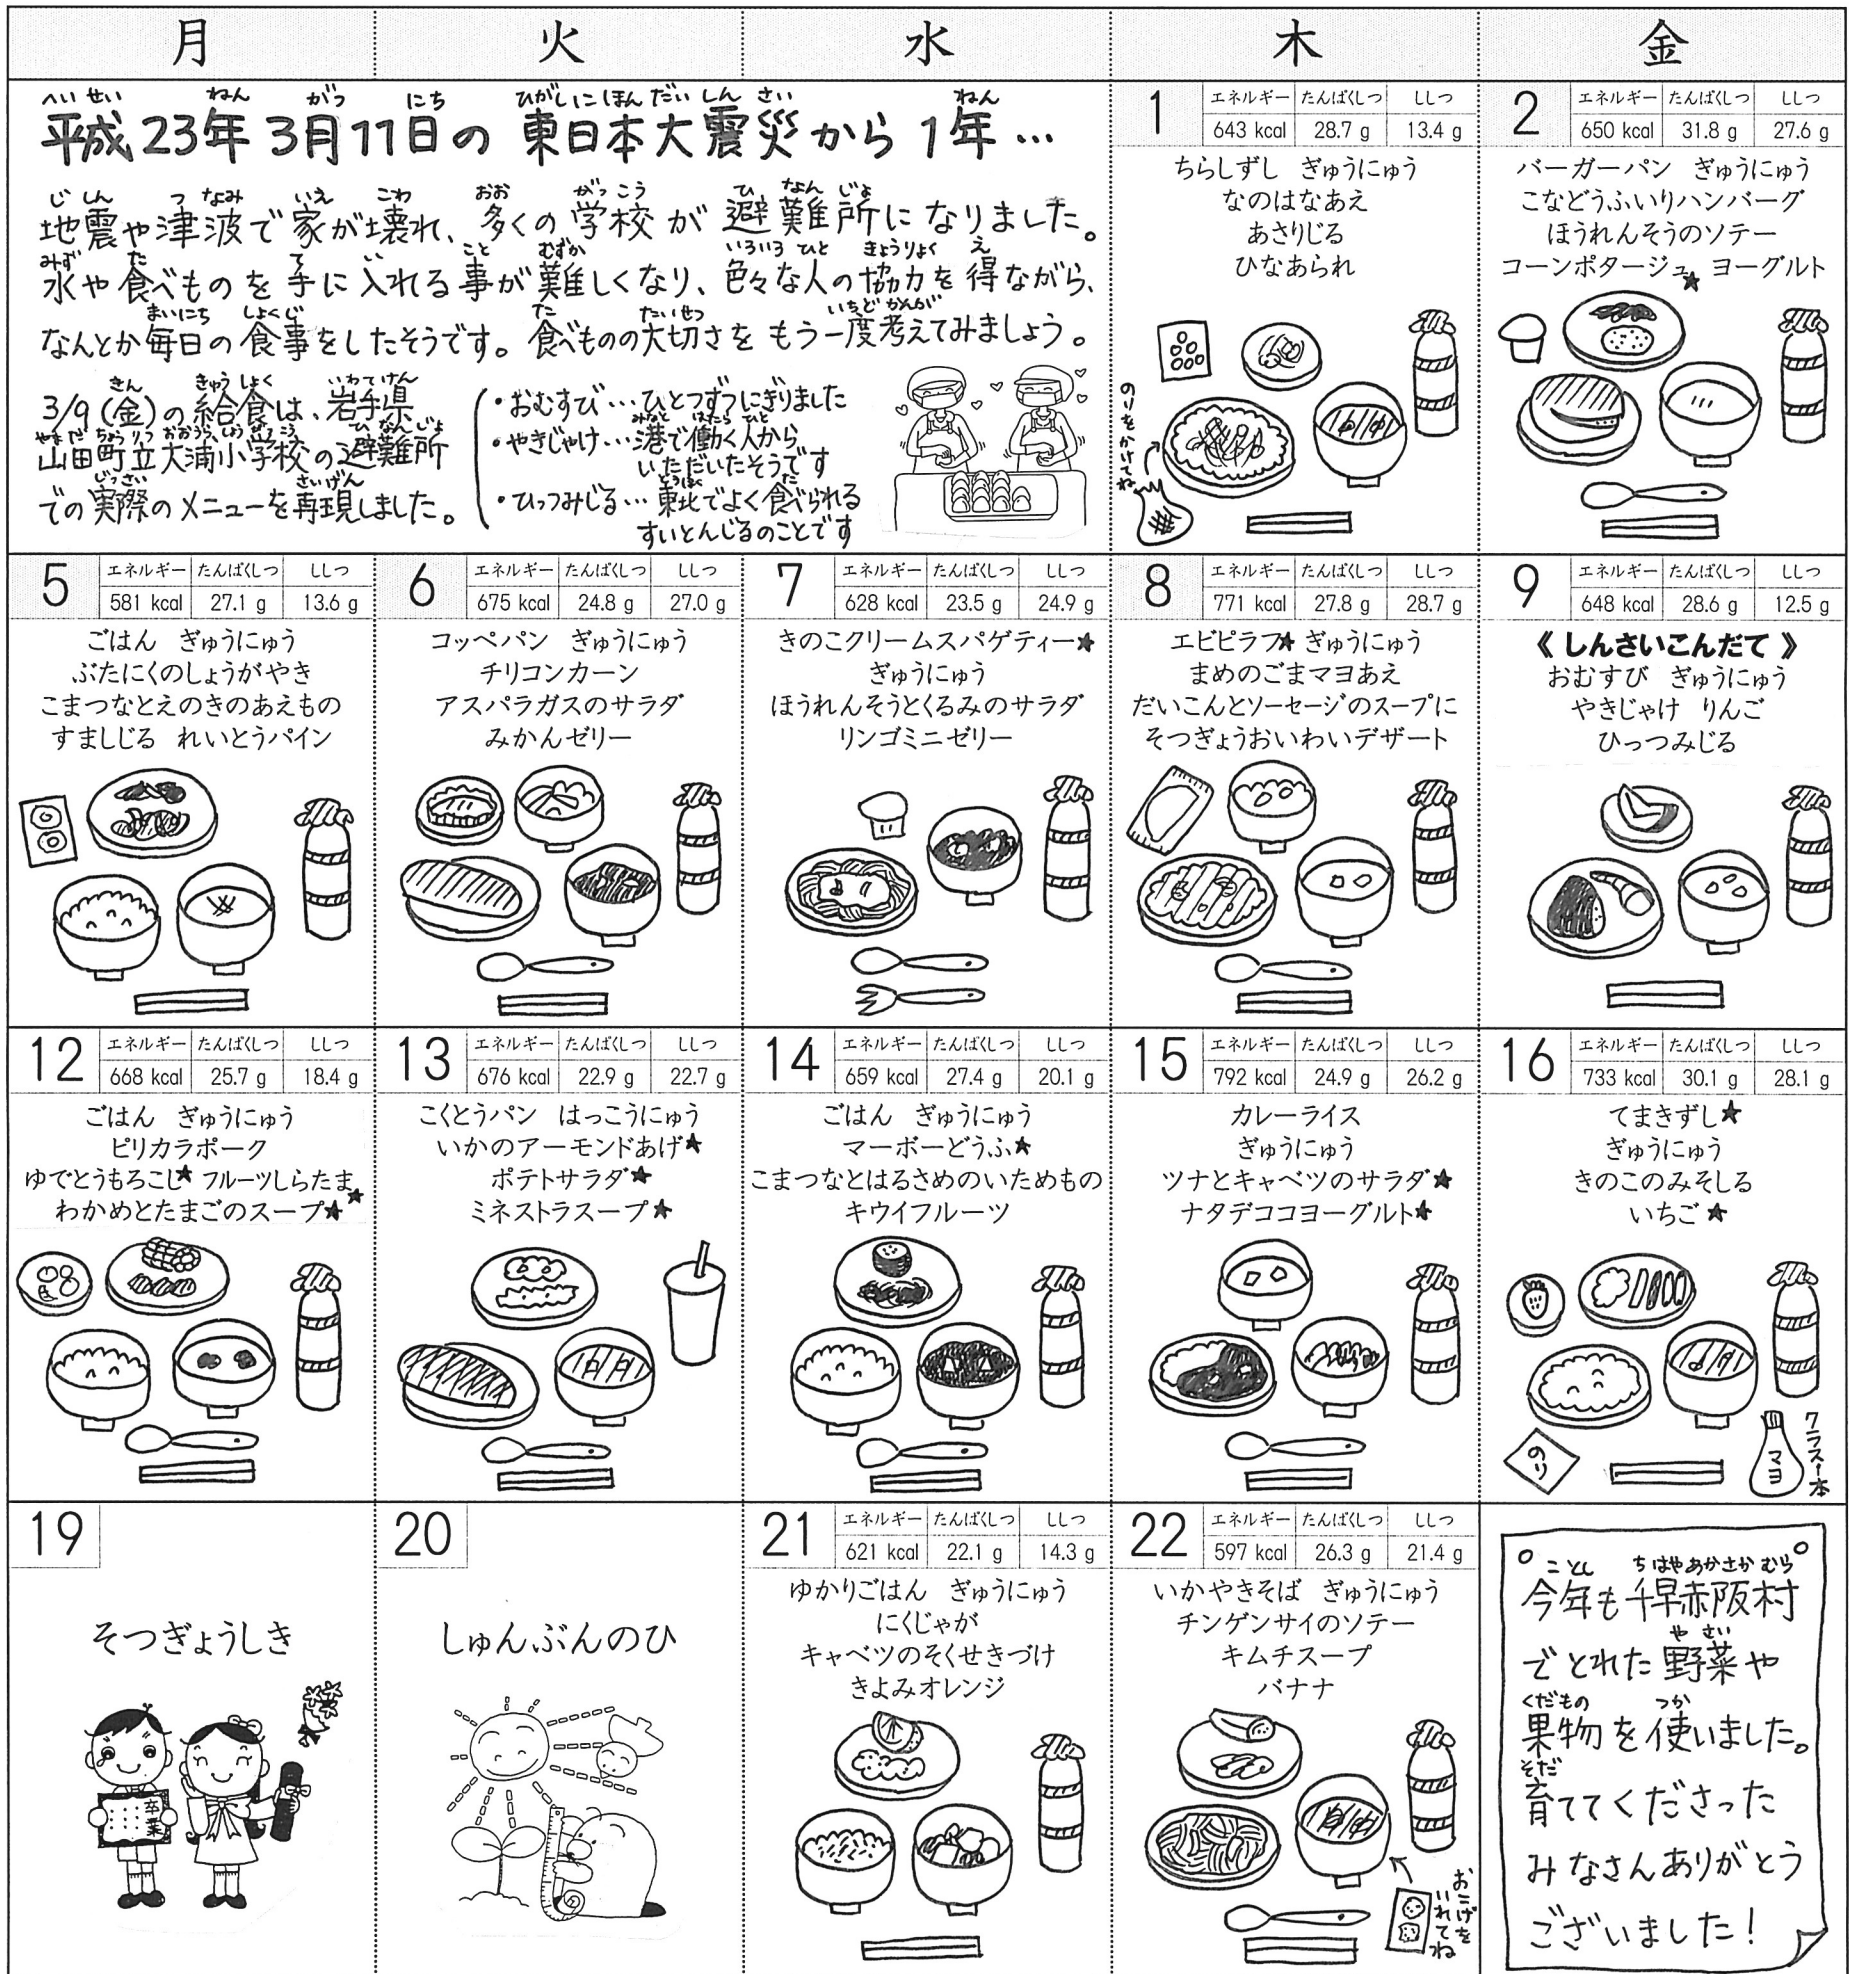 月 火 水 木 金
へいせい ねん がつ にち ひがしにほんだいしんさい ねん
平成23年3月11日の 東日本大震災から1年…
じしん つなみ いえ こわ おお がっこう ひなんじょ
地震や津波で家が壊れ、多くの学校が避難所になりました。
みず た て い こと むずか いろいろ ひと きょうりょく え
水や食べものを手に入れる事が難しくなり、色々な人の協力を得ながら、
まいにち しょくじ た たいせつ いちどかんが
なんとか毎日の食事をしたそうです。食べものの大切さをもう一度考えてみましょう。
きん きゅうしょく いわてけん
3/9(金)の給食は、岩手県
やまだちょうりつおおうらしょうがっこう ひなんじょ
山田町立大浦小学校の避難所
じっさい さいげん
での実際のメニューを再現しました。
・おむすび…ひとつずつにぎりました
みなと はたら ひと
・やきじゃけ…港で働く人から
いただいたそうです
とうほく た
・ひっつみじる…東北でよく食べられる
すいとんじるのことです
1 エネルギー たんぱくしつ ししつ
643 kcal 28.7 g 13.4 g
ちらしずし ぎゅうにゅう
なのはなあえ
あさりじる
ひなあられ
のりをかけてね
2 エネルギー たんぱくしつ ししつ
650 kcal 31.8 g 27.6 g
バーガーパン ぎゅうにゅう
こなどうふいりハンバーグ
ほうれんそうのソテー
コーンポタージュ★ ヨーグルト
5 エネルギー たんぱくしつ ししつ
581 kcal 27.1 g 13.6 g
ごはん ぎゅうにゅう
ぶたにくのしょうがやき
こまつなとえのきのあえもの
すましじる れいとうパイン
6 エネルギー たんぱくしつ ししつ
675 kcal 24.8 g 27.0 g
コッペパン ぎゅうにゅう
チリコンカーン
アスパラガスのサラダ
みかんゼリー
7 エネルギー たんぱくしつ ししつ
628 kcal 23.5 g 24.9 g
きのこクリームスパゲティー★
ぎゅうにゅう
ほうれんそうとくるみのサラダ
リンゴミニゼリー
8 エネルギー たんぱくしつ ししつ
771 kcal 27.8 g 28.7 g
エビピラフ★ ぎゅうにゅう
まめのごまマヨあえ
だいこんとソーセージのスープに
そつぎょうおいわいデザート
9 エネルギー たんぱくしつ ししつ
648 kcal 28.6 g 12.5 g
《しんさいこんだて》
おむすび ぎゅうにゅう
やきじゃけ りんご
ひっつみじる
12 エネルギー たんぱくしつ ししつ
668 kcal 25.7 g 18.4 g
ごはん ぎゅうにゅう
ピリカラポーク
ゆでとうもろこし★ フルーツしらたま★
わかめとたまごのスープ★
13 エネルギー たんぱくしつ ししつ
676 kcal 22.9 g 22.7 g
こくとうパン はっこうにゅう
いかのアーモンドあげ★
ポテトサラダ★
ミネストラスープ★
14 エネルギー たんぱくしつ ししつ
659 kcal 27.4 g 20.1 g
ごはん ぎゅうにゅう
マーボーどうふ★
こまつなとはるさめのいためもの
キウイフルーツ
15 エネルギー たんぱくしつ ししつ
792 kcal 24.9 g 26.2 g
カレーライス
ぎゅうにゅう
ツナとキャベツのサラダ★
ナタデココヨーグルト★
16 エネルギー たんぱくしつ ししつ
733 kcal 30.1 g 28.1 g
てまきずし★
ぎゅうにゅう
きのこのみそしる
いちご★
のり
マヨ
クラス1本
19
そつぎょうしき
卒業
20
しゅんぶんのひ
21 エネルギー たんぱくしつ ししつ
621 kcal 22.1 g 14.3 g
ゆかりごはん ぎゅうにゅう
にくじゃが
キャベツのそくせきづけ
きよみオレンジ
22 エネルギー たんぱくしつ ししつ
597 kcal 26.3 g 21.4 g
いかやきそば ぎゅうにゅう
チンゲンサイのソテー
キムチスープ
バナナ
おこげを
いれてね
ことし ちはやあかさかむら
今年も千早赤阪村
やさい
でとれた野菜や
くだもの つか
果物を使いました。
そだ
育ててくださった
みなさんありがとう
ございました!